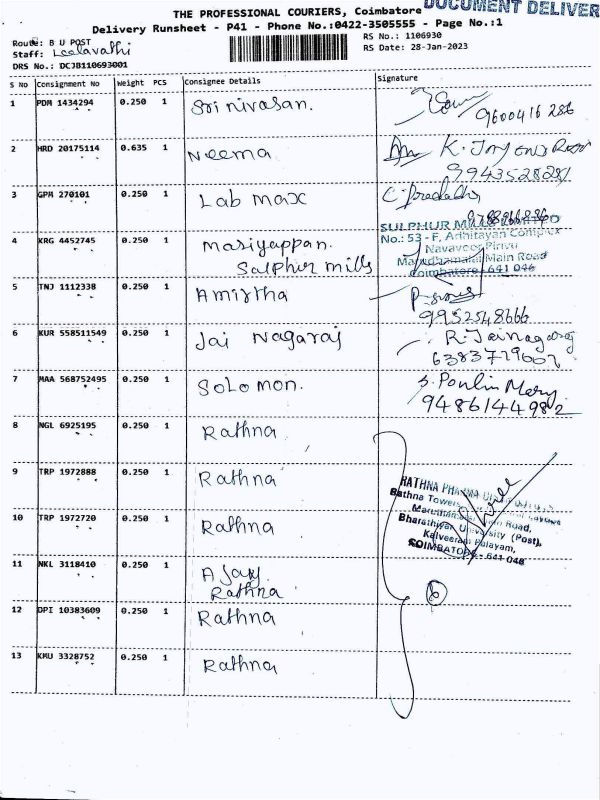 THE PROFESSIONAL COURIERS, Coimbatore
DOCUMENT DELIVER
Delivery Runsheet - P41 - Phone No.:0422-3505555 - Page No.:1
Route: B U POST
RS No.: 1106930
Staff: Leelavathi
RS Date: 28-Jan-2023
DRS No.: DCJB110693001
S No Consignment No Weight PCS Consignee Details Signature
1 PDM 1434294 0.250 1 Srinivasan.
9600416286
2 HRD 20175114 0.635 1 Neema K.
9943528281
3 GPM 270101 0.250 1 Lab max
SULPHUR MILLS LIMITED
No.: 53 - F, Adhitayan Complex
4 KRG 4452745 0.250 1 Mariyappan.
Sulphur mills
Navaveer Pirivu
Marudhamalai Main Road
Coimbatore - 641 046
5 TNJ 1112338 0.250 1 Amirtha
9952548666
6 KUR 558511549 0.250 1 Jai Nagaraj R. Jainagaraj
6383729002
7 MAA 568752495 0.250 1 Solomon. S. Poulin Mery
9486144982
8 NGL 6925195 0.250 1 Rathna
9 TRP 1972888 0.250 1 Rathna
RATHNA PHARMA
Rathna Towers
10 TRP 1972720 0.250 1 Rathna
Road,
Bharathiyar University (Post),
Kalveeram Palayam,
COIMBATORE - 641 046
11 NKL 3118410 0.250 1 Ajay
Rathna
6
12 DPI 10383609 0.250 1 Rathna
13 KMU 3328752 0.250 1 Rathna